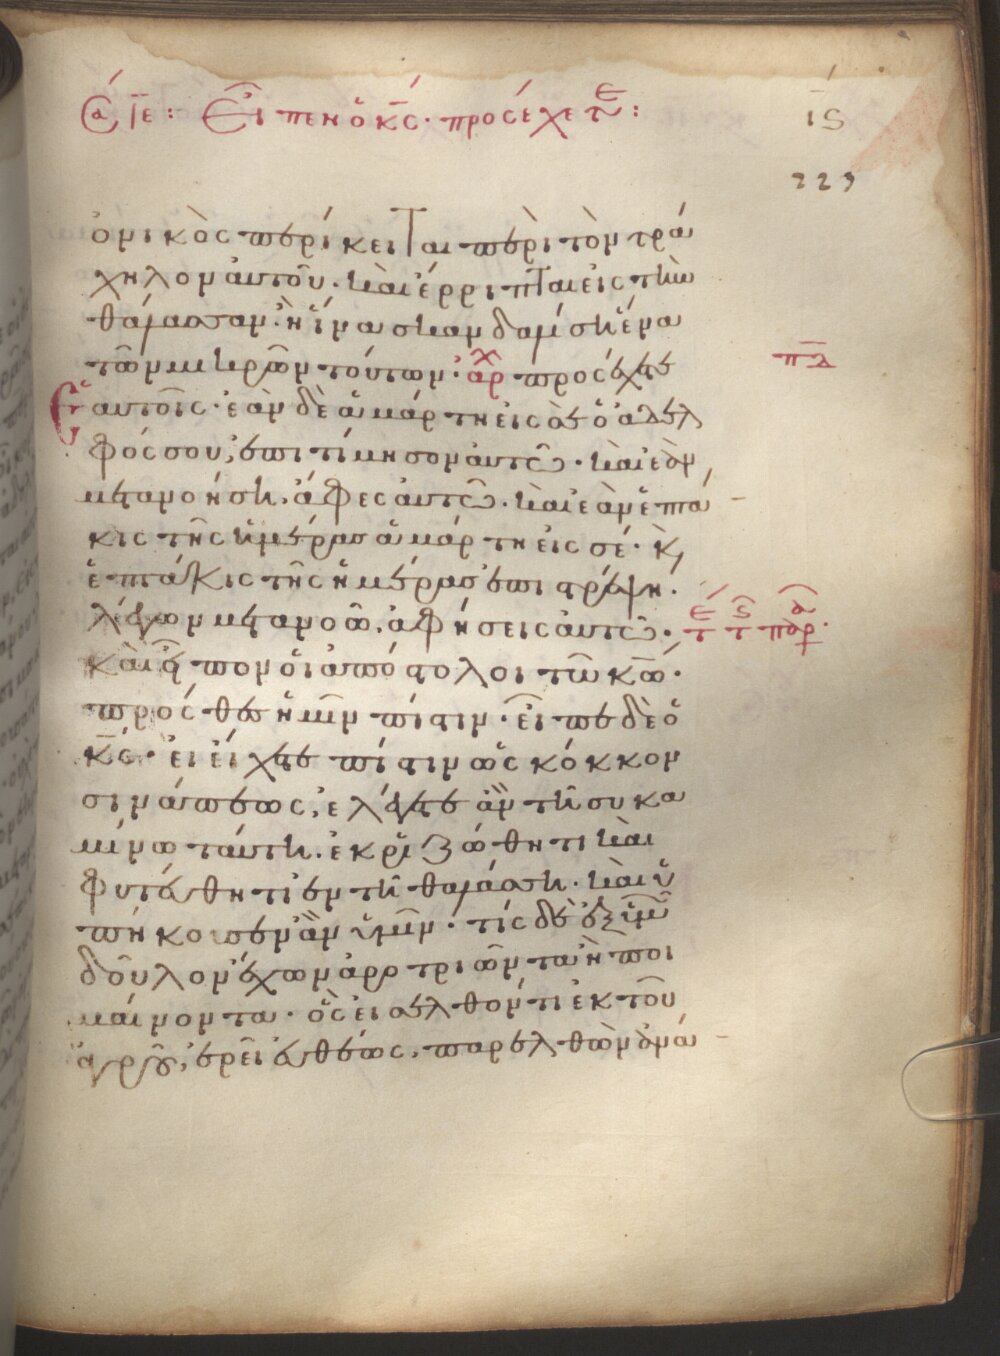 Σα ιε: Εἶπεν ὁ κς· προσέχετε:
ις
223
ὀνικὸς περίκειται περὶ τὸν τρά
χηλον αὐτοῦ· καὶ ἔρριπται εἰς τὴν
θάλασσαν· ἢ ἵνα σκανδαλίση ἕνα
τῶν μικρῶν τούτων· ἀρχ προσέχετε
πδ
ἑαυτοῖς· ἐὰν δὲ ἁμάρτη εἰς σὲ ὁ ἀδελ
φός σου, ἐπιτίμησον αὐτῶ· καὶ ἐὰν
μετανοήση, ἄφες αὐτῶ· καὶ ἐὰν ἑπτά
κις τῆς ἡμέρας ἁμάρτη εἰς σέ· κ,
ἑπτάκις τῆς ἡμέρας ἐπιστρέψη·
λέγων μετανοῶ, ἀφήσεις αὐτῶ·
καὶ εἶπον οἱ ἀπόστολοι τῶ κω·
πρόσθες ἡμῖν πίστιν· εἶπε δὲ ὁ
κς· εἰ εἴχετε πίστιν ὡς κόκκον
σινάπεως, ἐλέγετε ἂν τῆ συκα
μίνω ταύτη, ἐκριζώθητι καὶ
φυτεύθητι ἐν τῆ θαλάσση· καὶ ὑ
πήκουσεν ἂν ὑμῖν· τίς δὲ ἐξ ὑμῶν
δοῦλον ἔχων ἀροτριῶντα ἢ ποι
μαίνοντα· ὃς εἰσελθόντι ἐκ τοῦ
ἀγροῦ, ἐρεῖ εὐθέως, παρελθὼν ἀνά